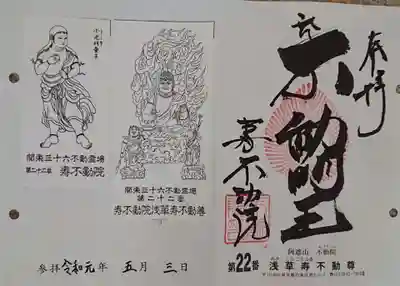 関東三十六不動霊場
第二十二番 寿不動院
関東三十六不動霊場
第二十二番
寿不動院浅草寿不動尊
参拝 令和元年 五月 三日
奉拝
不動明王
寿不動院
阿遮山 不動院
第22番 浅草寿不動尊